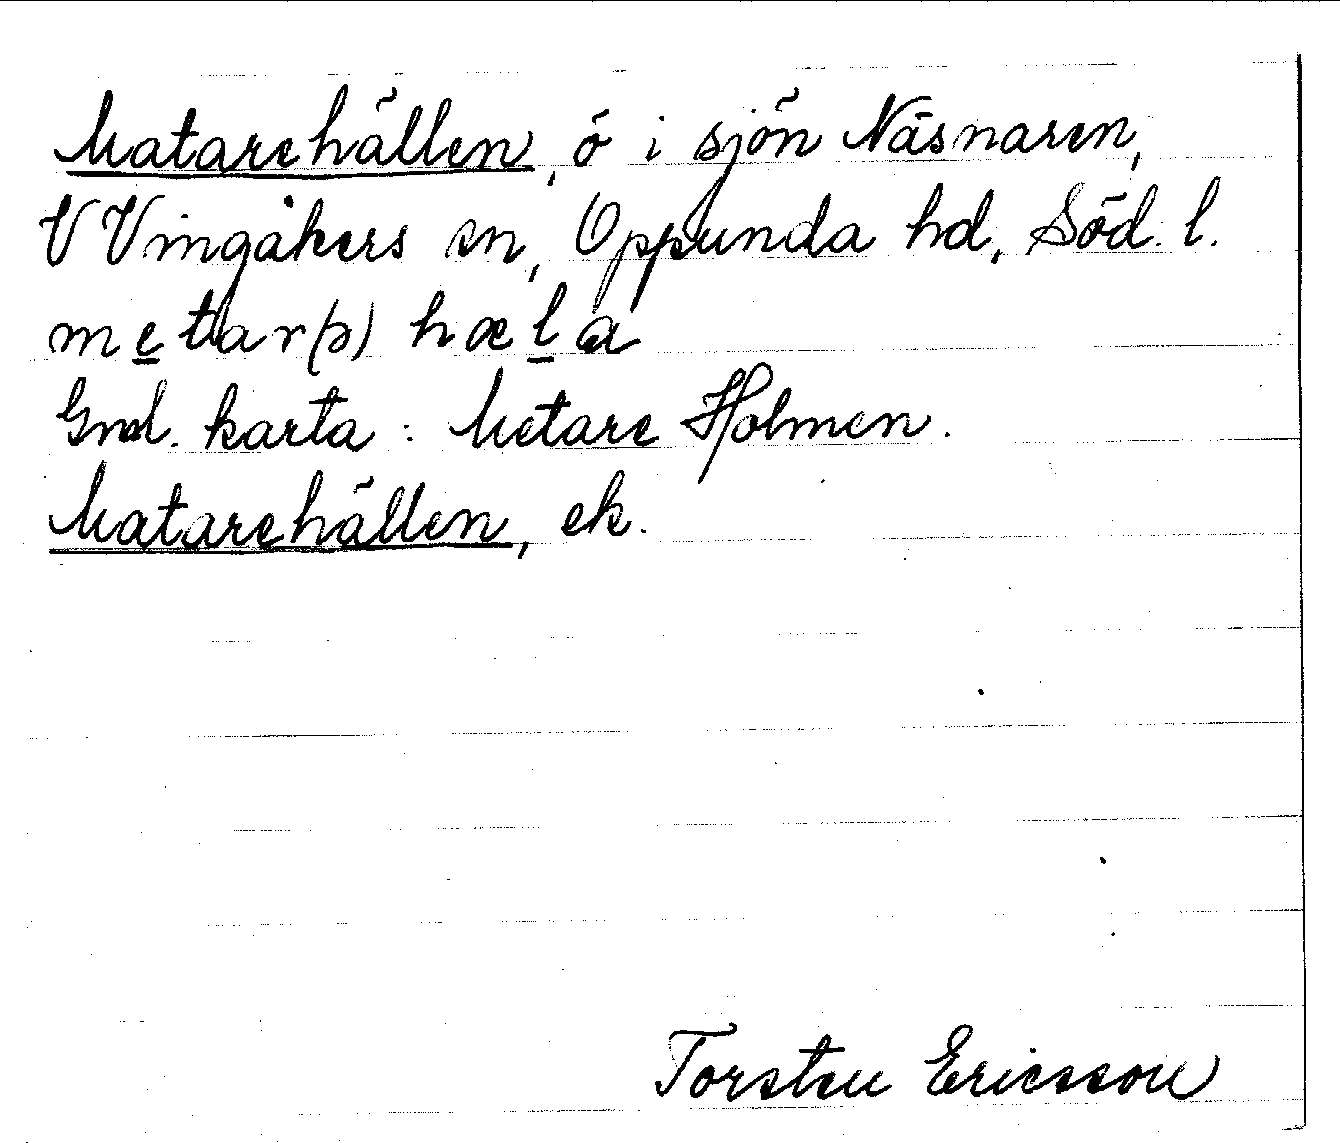 Matarehällen, ö i sjön Näsnaren,
V Vingåkers sn, Oppunda hd, Söd. l.
metar(ə) hæla
Gnd. karta: Metare Holmen.
Matarehällen, ek.
Torsten Ericsson